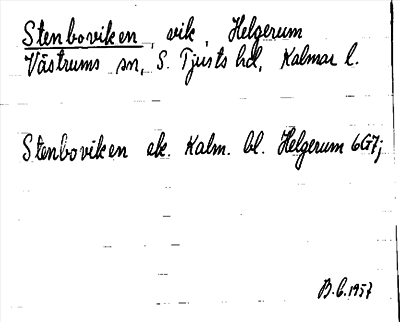 Stenboviken, vik, Helgerum
Västrums sn, S. Tjusts hd, Kalmar l.
Stenboviken ek. Kalm. bl. Helgerum 6G7;
B.C. 1957